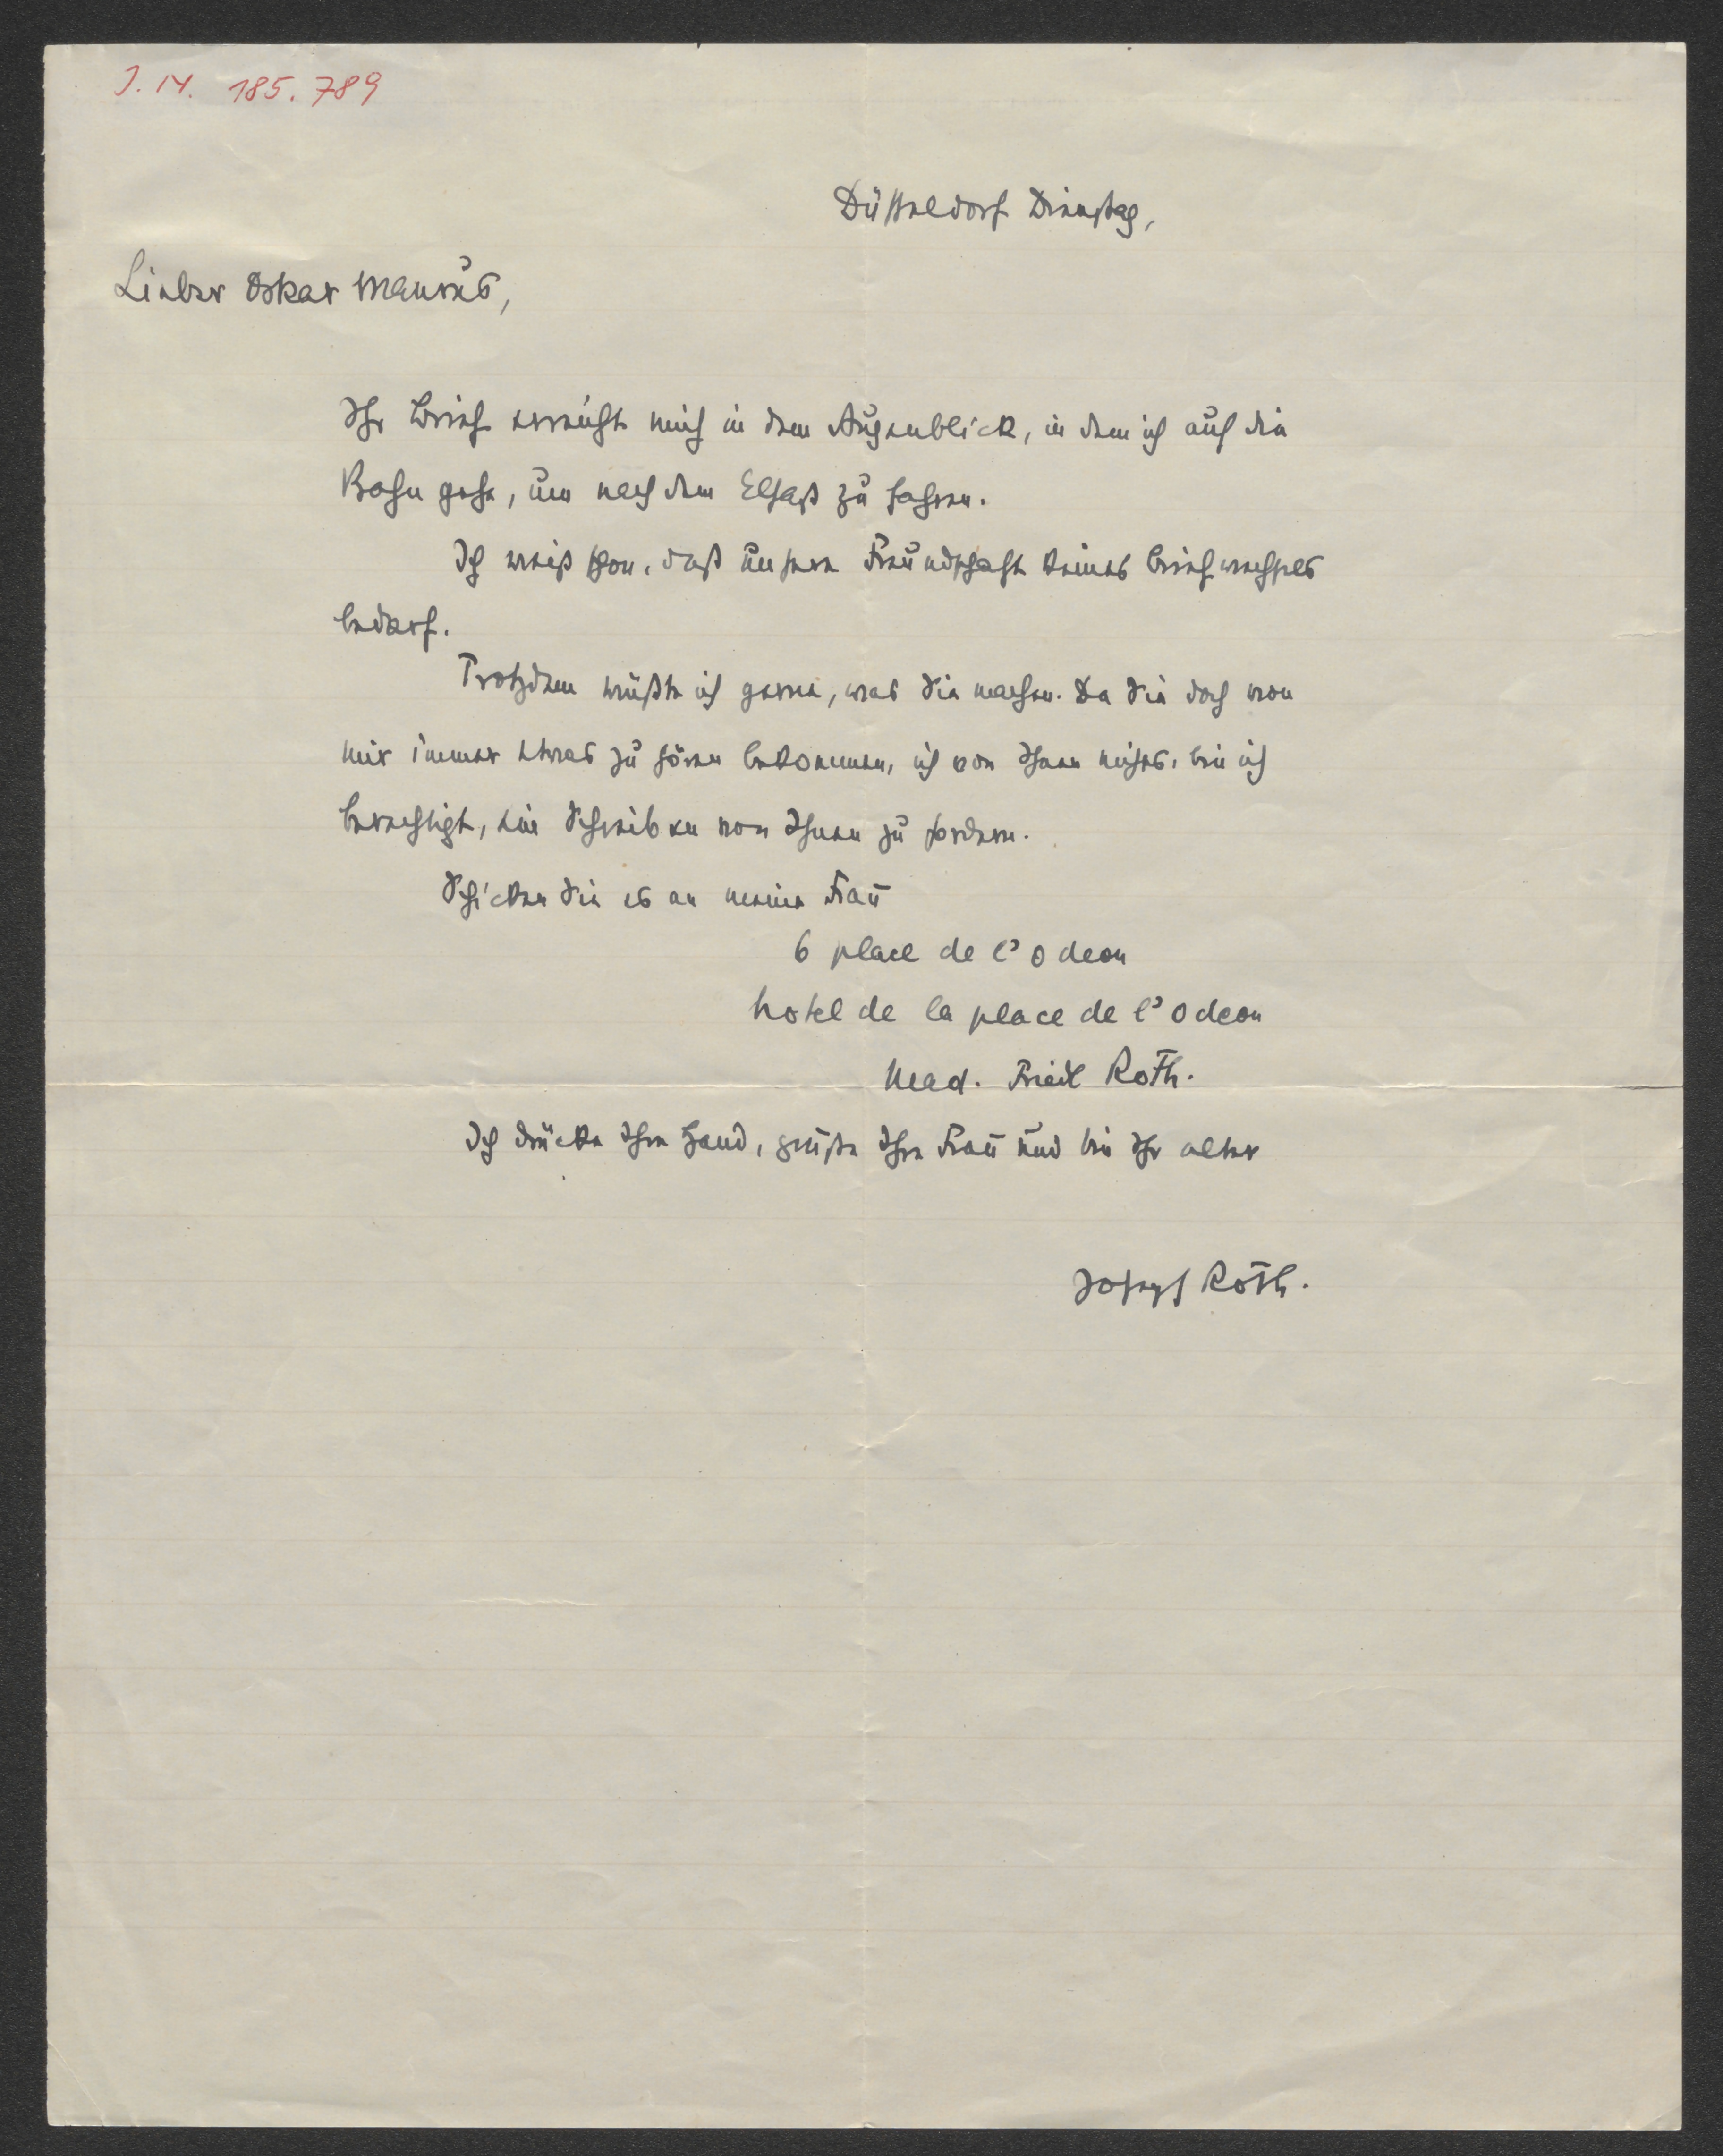 J. N. 185.789
Düsseldorf Dienstag,
Lieber Oskar Maurus,
Ihr Brief erreicht mich in dem Augenblick, in dem ich auf die
Bahn gehe, um nach dem Elsaß zu fahren.
Ich weiß schon, daß unsere Freundschaft keines Briefwechsels
bedarf.
Trotzdem wüßte ich gerne, was Sie machen. Da Sie doch von
mir immer etwas zu hören bekommen, ich von Ihnen nichts, bin ich
berechtigt, ein Schreiben von Ihnen zu fordern.
Schicken Sie es an meine Frau
6 place de l'Odeon
hotel de la place de l'Odeon
Mad. Friedl Roth.
Ich drücke Ihre Hand, grüße Ihre Frau und bin Ihr alter
Joseph Roth.